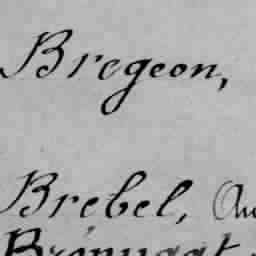 Bregeon,
Brébel, Au